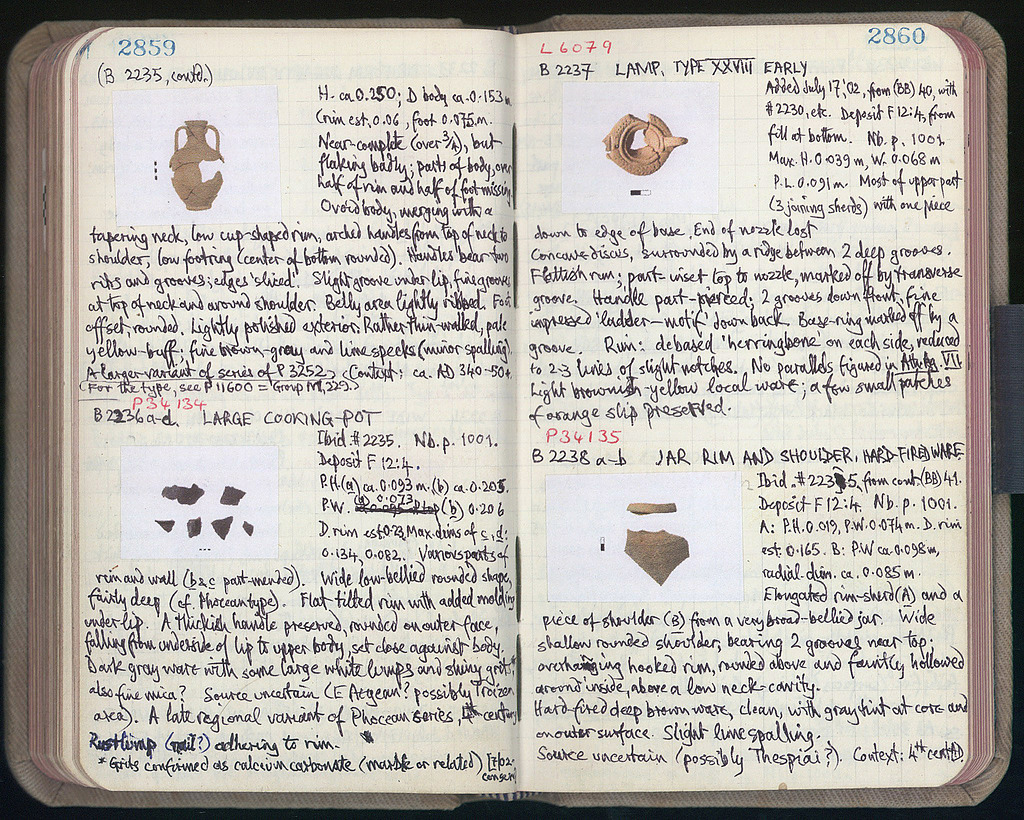 2859
(B 2235, contd.)
H. ca. 0.250; D body ca. 0.153 m
(rim est. 0.06, foot 0.075 m.
Near-complete (over 3/4), but
flaking badly; parts of body, over
half of rim and half of foot missing
Ovoid body, merging with a
tapering neck, low cup-shaped rim, arched handles from top of neck to
shoulder, low footring (center of bottom rounded). Handles bear two
ribs and grooves; edges 'sliced'. Slight groove under lip, fine grooves
at top of neck and around shoulder. Belly area lightly ribbed. Foot
offset, rounded. Lightly polished exterior. Rather thin-walled, pale
yellow-buff; fine brown-gray and lime specks (minor spalling).
A larger variant of series of P 3252. (Context: ca. AD 340-50+.
(For the type, see P 11600 = Group M, 229.)
P34134
B 2236 a-d. LARGE COOKING-POT
Ibid. #2235. Nb. p. 1001.
Deposit F 12:4.
P.H. (a) ca. 0.093 m. (b) ca. 0.205.
P.W. (a) 0.073 (b) 0.206
D. rim est 0.23, Max. dims of c, d:
0.134, 0.082. Various parts of
rim and wall (b & c part-mended). Wide low-bellied rounded shape,
fairly deep (cf. Phocean type). Flat tilted rim with added molding
under lip. A thickish handle preserved, rounded on outer face,
falling from underside of lip to upper body, set close against body.
Dark gray ware with some large white lumps and shiny grits*
also fine mica? Source uncertain (E Aegean? possibly Troizen
area). A late regional variant of Phocean series, 4th century
Rust lump (nail?) adhering to rim.
* Grits confirmed as calcium carbonate (marble or related) [7/02
conserv
2860
L 6079
B 2237 LAMP, TYPE XXVIII EARLY
Added July 17, '02, from (BB) 40, with
#2230, etc. Deposit F 12:4, from
fill at bottom. Nb. p. 1001.
Max. H. 0.039 m, W. 0.068 m
P.L. 0.091 m. Most of upper part
(3 joining sherds) with one piece
down to edge of base. End of nozzle lost
Concave discus, surrounded by a ridge between 2 deep grooves.
Flattish rim; part-inset top to nozzle, marked off by transverse
groove. Handle part-pierced; 2 grooves down front; fine
impressed 'ladder-motif' down back. Base-ring marked off by a
groove. Rim: debased 'herringbone' on each side, reduced
to 2-3 lines of slight notches. No parallels figured in Ath. Ag. VII
Light brownish-yellow local ware; a few small patches
of orange slip preserved.
P34135
B 2238 a-b JAR RIM AND SHOULDER, HARD-FIRED WARE
Ibid. #2235, from cont. (BB) 41.
Deposit F 12:4. Nb. p. 1001.
A: P.H. 0.019, P.W. 0.074 m. D. rim
est. 0.165. B: P.W ca. 0.098 m,
radial dim. ca. 0.085 m.
Elongated rim-sherd (A) and a
piece of shoulder (B) from a very broad-bellied jar. Wide
shallow rounded shoulder, bearing 2 grooves near top;
overhanging hooked rim, rounded above and faintly hollowed
around inside, above a low neck-cavity.
Hard-fired deep brown ware, clean, with gray tint at core and
on outer surface. Slight lime spalling.
Source uncertain (possibly Thespiai?). Context: 4th cent AD.